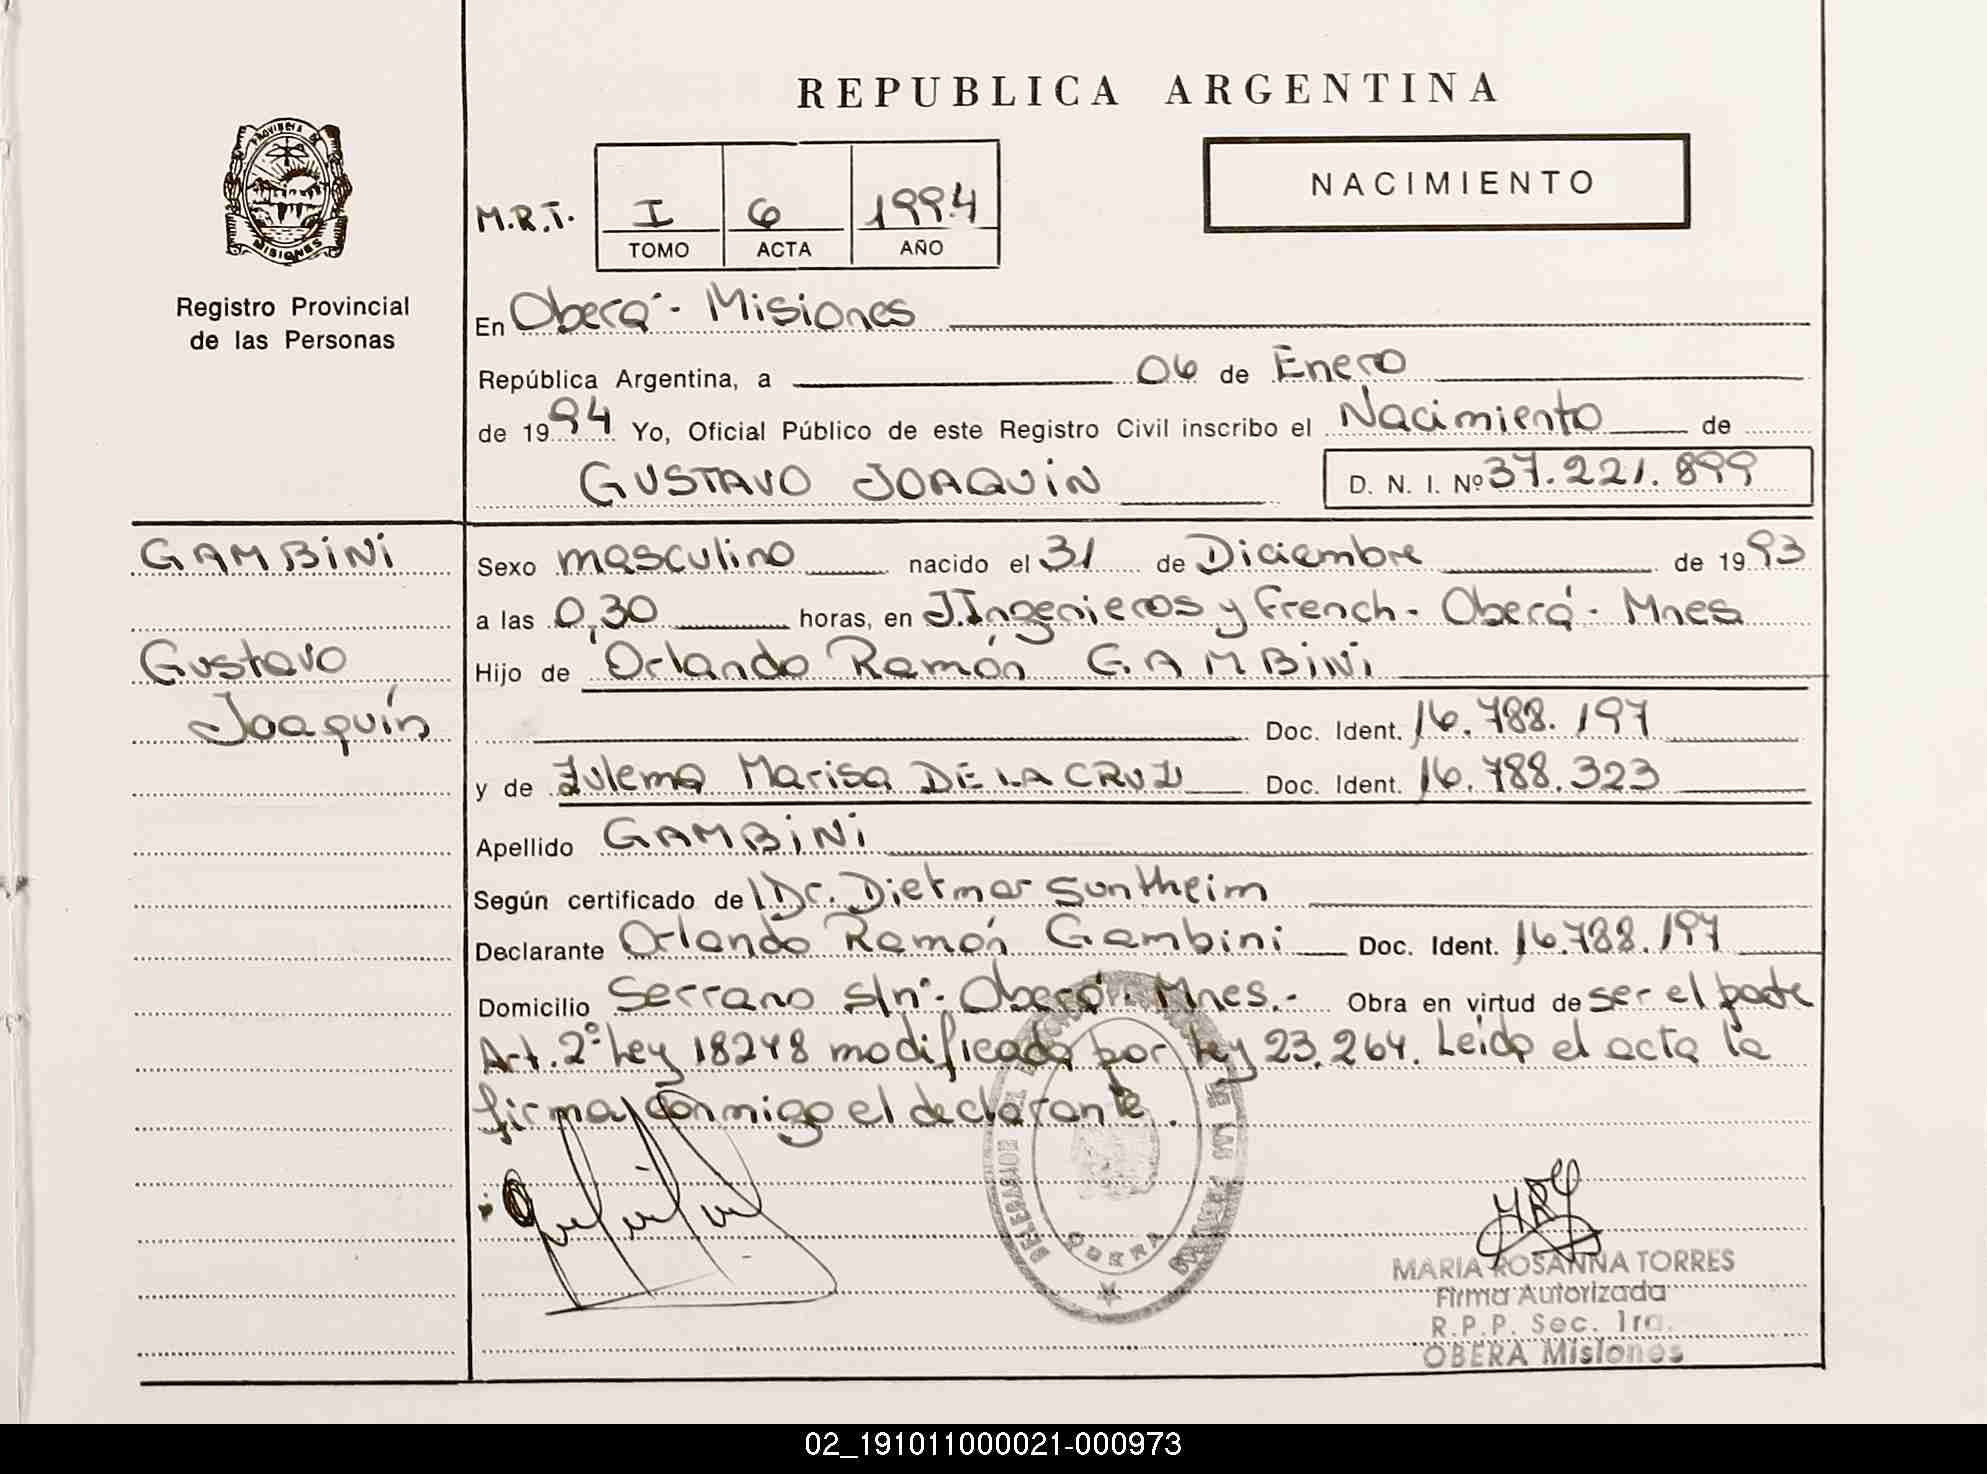 REPUBLICA ARGENTINA
PROVINCIA DE
MISIONES
Registro Provincial
de las Personas
NACIMIENTO
M.R.T. I 6 1994
TOMO ACTA AÑO
En Oberá - Misiones
República Argentina, a 06 de Enero
de 1994 Yo, Oficial Público de este Registro Civil inscribo el Nacimiento de
GUSTAVO JOAQUIN D. N. I. Nº 37.221.899
GAMBINI
Gustavo
Joaquín
Sexo masculino nacido el 31 de Diciembre de 1993
a las 0,30 horas, en J.Ingenieros y French - Oberá - Mnes
Hijo de Orlando Ramón GAMBINI
Doc. Ident. 16.788.197
y de Zulema Marisa DE LA CRUZ Doc. Ident. 16.788.323
Apellido GAMBINI
Según certificado de Dr. Dietmar Suntheim
Declarante Orlando Ramón Gambini Doc. Ident. 16.788.197
Domicilio Serrano s/nº - Oberá - Mnes.- Obra en virtud de ser el padre
Art. 2º Ley 18248 modificada por Ley 23.264. Leida el acta la
firma conmigo el declarante.
OBERA
MRT
MARIA ROSANNA TORRES
Firma Autorizada
R.P.P. Sec. 1ra.
OBERA Misiones
02_191011000021-000973